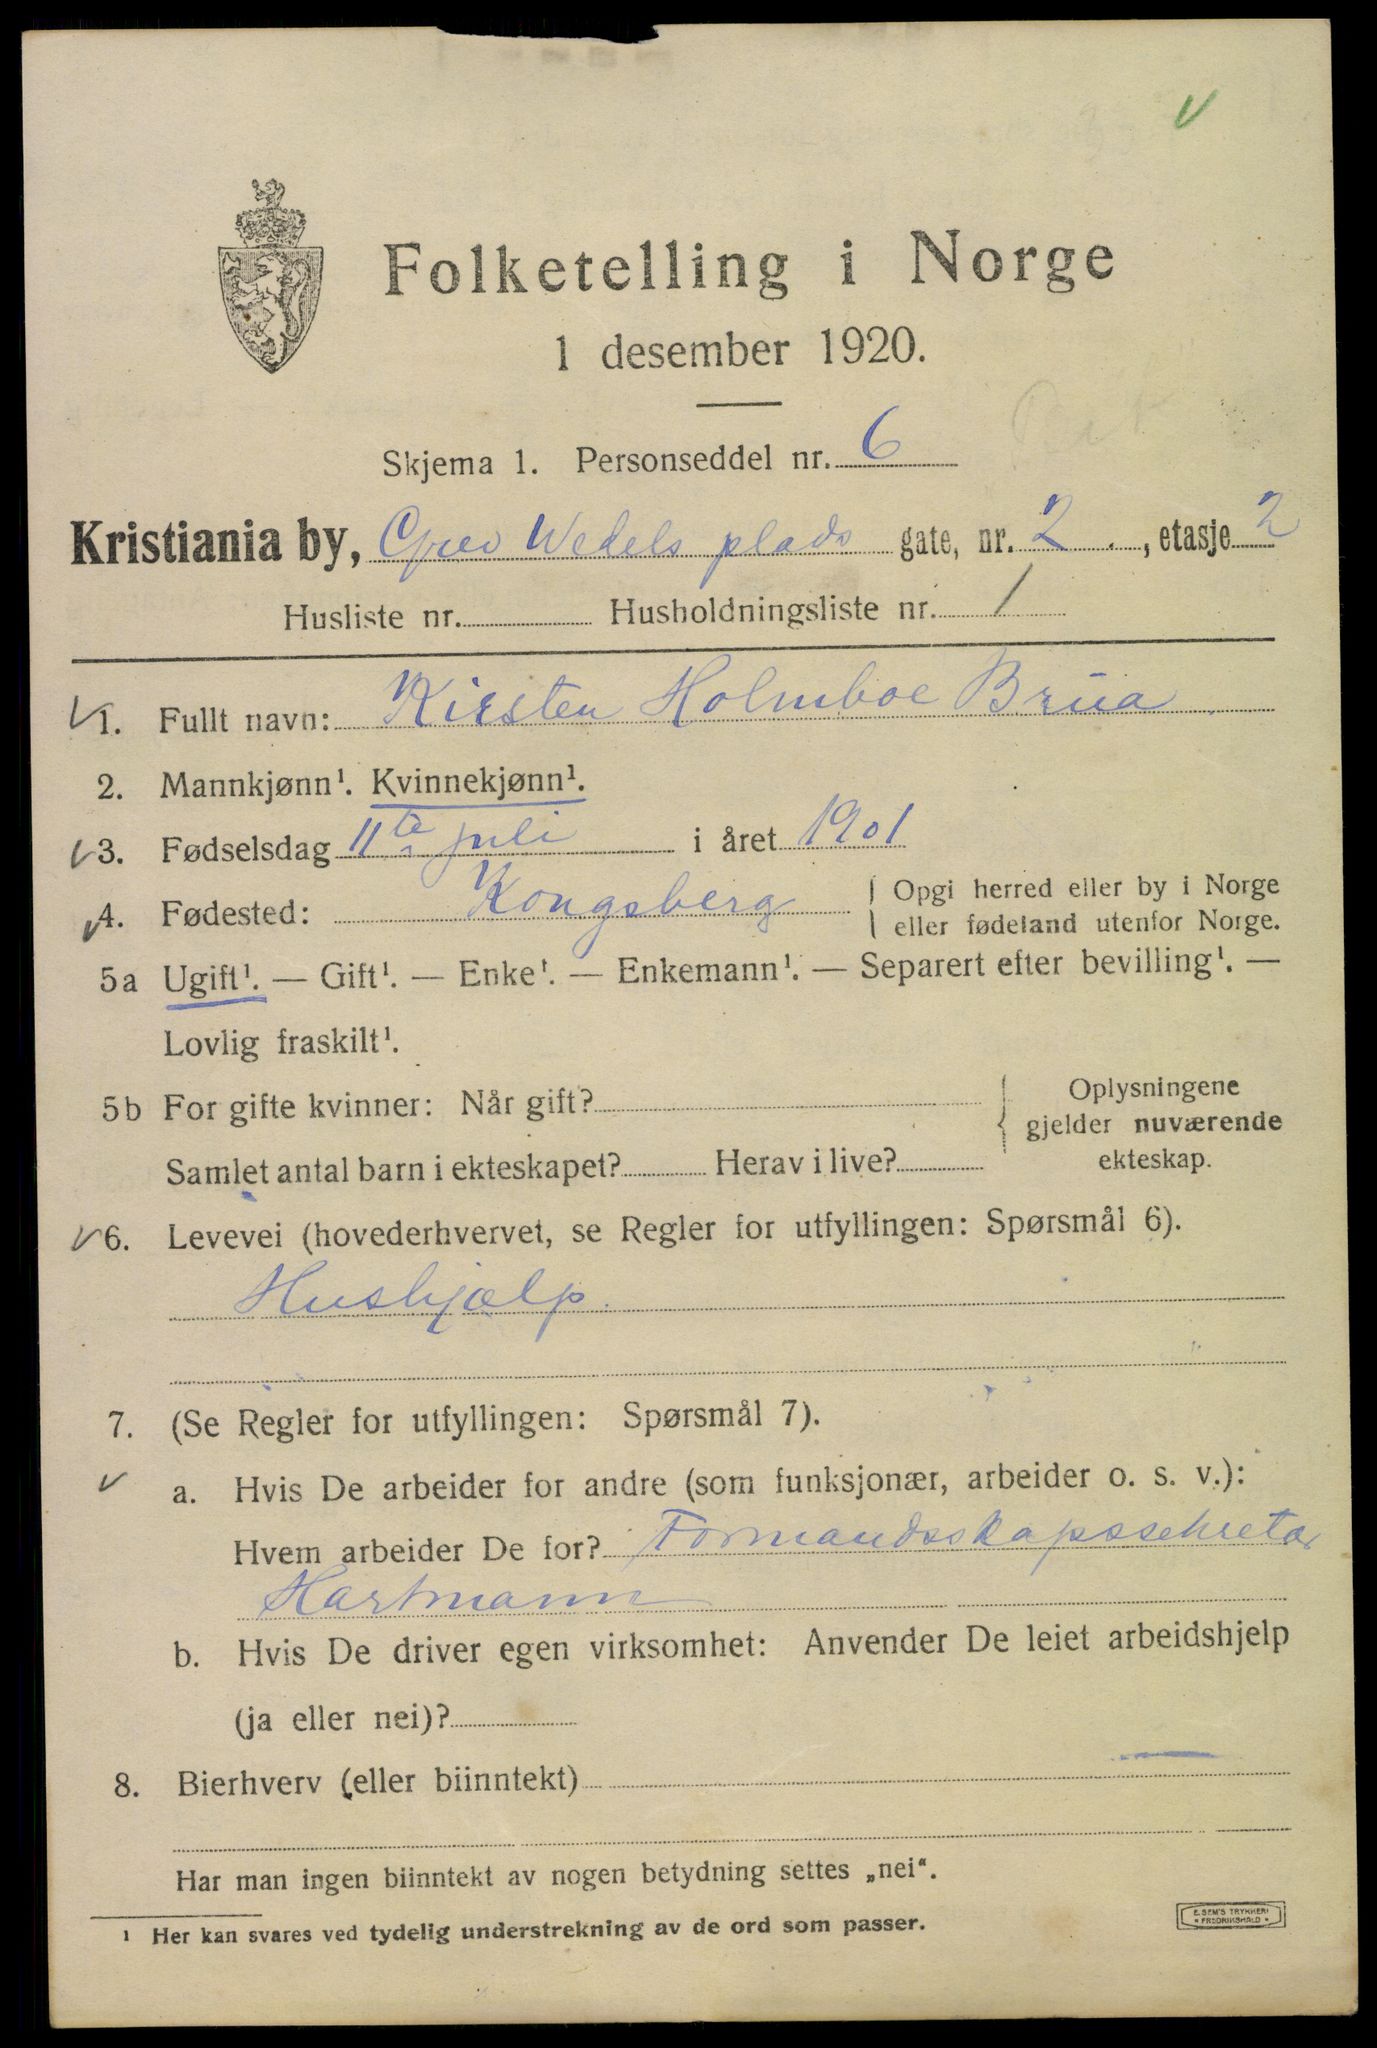 Folketelling i Norge
1 desember 1920.
Skjema 1. Personseddel nr. 6
Kristiania by, Grev Wedels plads gate, nr. 2, etasje 2
Husliste nr. Husholdningsliste nr. 1
1. Fullt navn: Kirsten Holmboe Brúa
2. Mannkjønn¹. Kvinnekjønn¹.
3. Fødselsdag 11te juli i året 1901
4. Fødested: Kongsberg Opgi herred eller by i Norge
eller fødeland utenfor Norge.
5a Ugift¹. — Gift¹. — Enke¹. — Enkemann¹. — Separert efter bevilling¹. —
Lovlig fraskilt¹.
5b For gifte kvinner: Når gift?
Samlet antal barn i ekteskapet? Herav i live?
Oplysningene
gjelder nuværende
ekteskap.
6. Levevei (hovederhvervet, se Regler for utfyllingen: Spørsmål 6).
Hushjælp.
7. (Se Regler for utfyllingen: Spørsmål 7).
a. Hvis De arbeider for andre (som funksjonær, arbeider o. s. v.):
Hvem arbeider De for? Formandsskapssekretær
Hartmann
b. Hvis De driver egen virksomhet: Anvender De leiet arbeidshjelp
(ja eller nei)?
8. Bierhverv (eller biinntekt) —
Har man ingen biinntekt av nogen betydning settes „nei“.
¹ Her kan svares ved tydelig understrekning av de ord som passer.
E. SEM'S TRYKKERI
* FREDRIKSHALD *